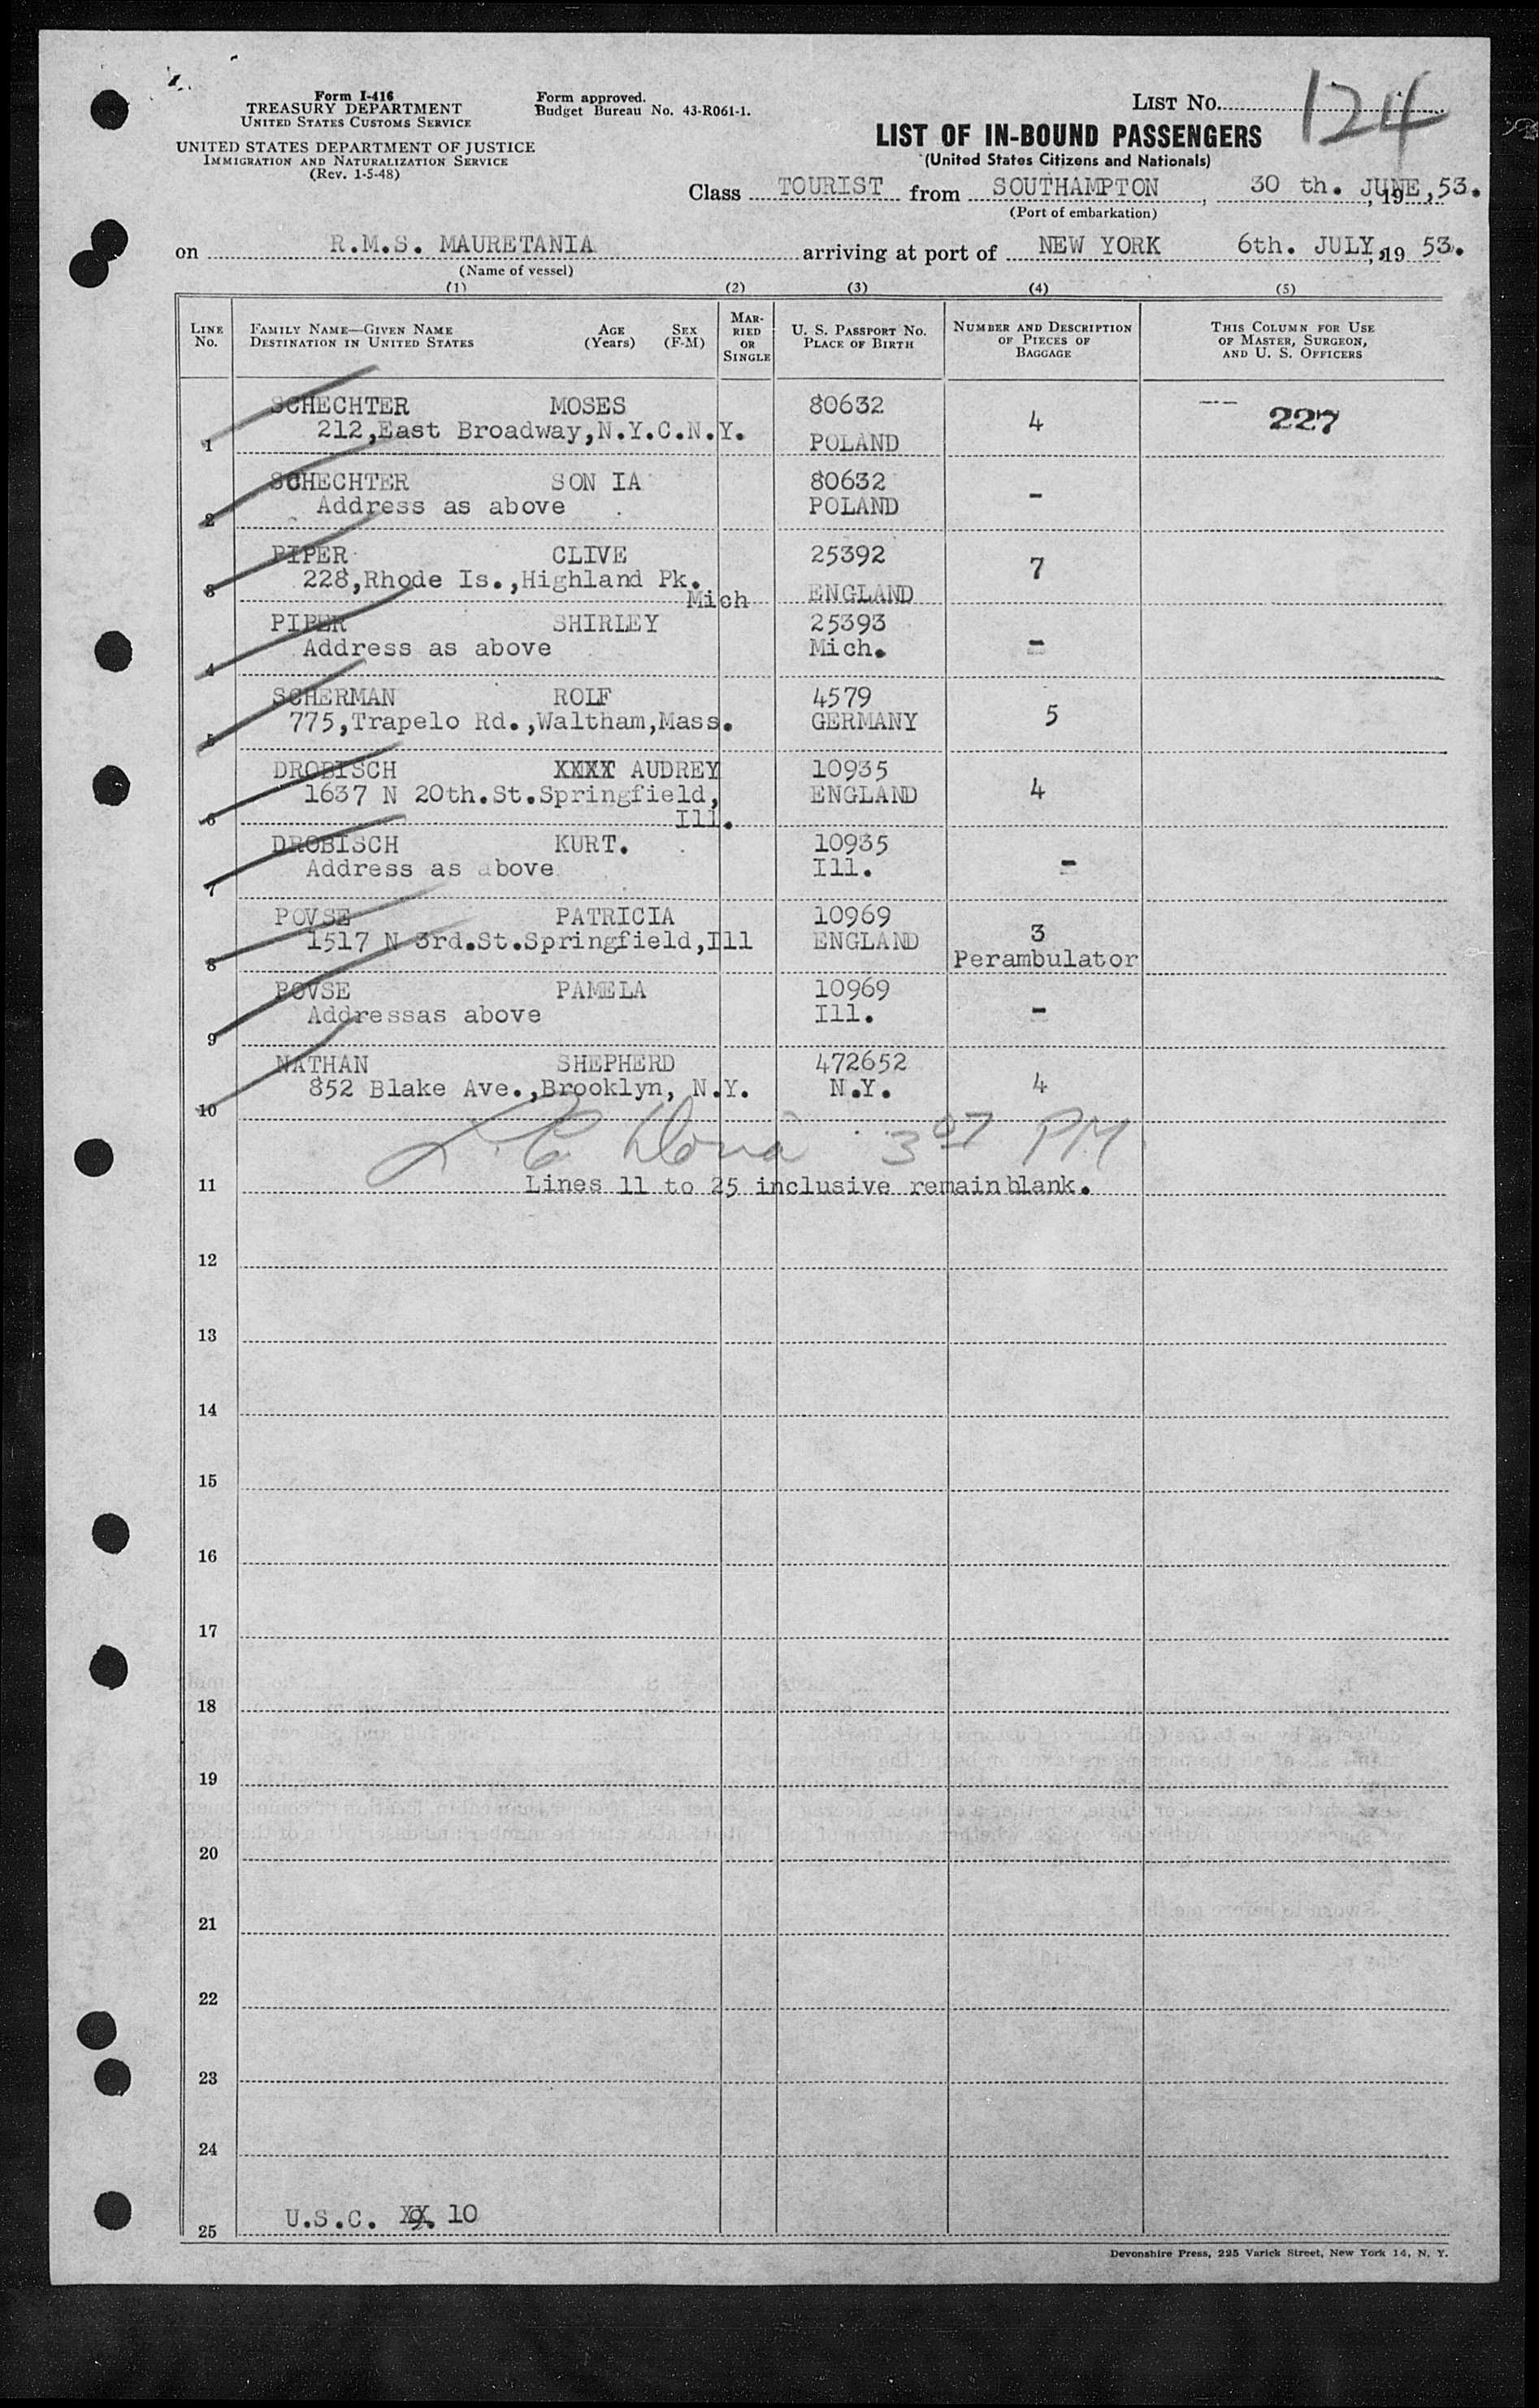 Form I-416
TREASURY DEPARTMENT
UNITED STATES CUSTOMS SERVICE
UNITED STATES DEPARTMENT OF JUSTICE
IMMIGRATION AND NATURALIZATION SERVICE
(Rev. 1-5-48)
Form approved.
Budget Bureau No. 43-R061-1.
LIST No. 124
LIST OF IN-BOUND PASSENGERS
(United States Citizens and Nationals)
Class TOURIST from SOUTHAMPTON, 30 th. JUNE, 19 53.
(Port of embarkation)
on R.M.S. MAURETANIA arriving at port of NEW YORK 6th. JULY, 19 53.
(Name of vessel)
(1) (2) (3) (4) (5)
LINE No. FAMILY NAME—GIVEN NAME DESTINATION IN UNITED STATES AGE (Years) SEX (F-M) MARRIED OR SINGLE U. S. PASSPORT NO. PLACE OF BIRTH NUMBER AND DESCRIPTION OF PIECES OF BAGGAGE THIS COLUMN FOR USE OF MASTER, SURGEON, AND U. S. OFFICERS
SCHECHTER MOSES 80632 4 227
1 212,East Broadway,N.Y.C.N.Y. POLAND
SCHECHTER SON IA 80632 -
2 Address as above POLAND
PIPER CLIVE 25392 7
3 228,Rhode Is.,Highland Pk. Mich ENGLAND
PIPER SHIRLEY 25393
4 Address as above Mich. -
SCHERMAN ROLF 4579
5 775,Trapelo Rd.,Waltham,Mass. GERMANY 5
DROBISCH XXXX AUDREY 10935
6 1637 N 20th.St.Springfield, Ill. ENGLAND 4
DROBISCH KURT. 10935
7 Address as above Ill. -
POVSE PATRICIA 10969 3
8 1517 N 3rd.St.Springfield,Ill ENGLAND Perambulator
POVSE PAMELA 10969
9 Addressas above Ill. -
NATHAN SHEPHERD 472652
10 852 Blake Ave.,Brooklyn, N.Y. N.Y. 4
3 07 PM
11 Lines 11 to 25 inclusive remain blank.
12
13
14
15
16
17
18
19
20
21
22
23
24
25 U.S.C. XX 9. 10
Devonshire Press, 225 Varick Street, New York 14, N. Y.